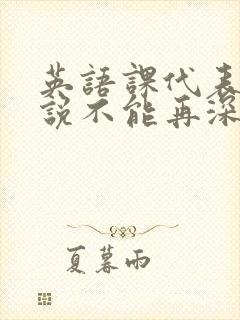 英語課代表
說不能再深
夏暮雨